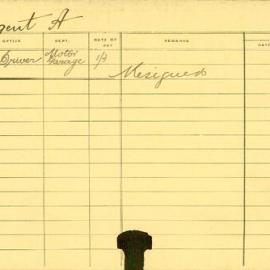 gent A
OFFICE DEPT. RATE OF PAY REMARKS DATE
Driver Motor Garage 1/7 Resigned